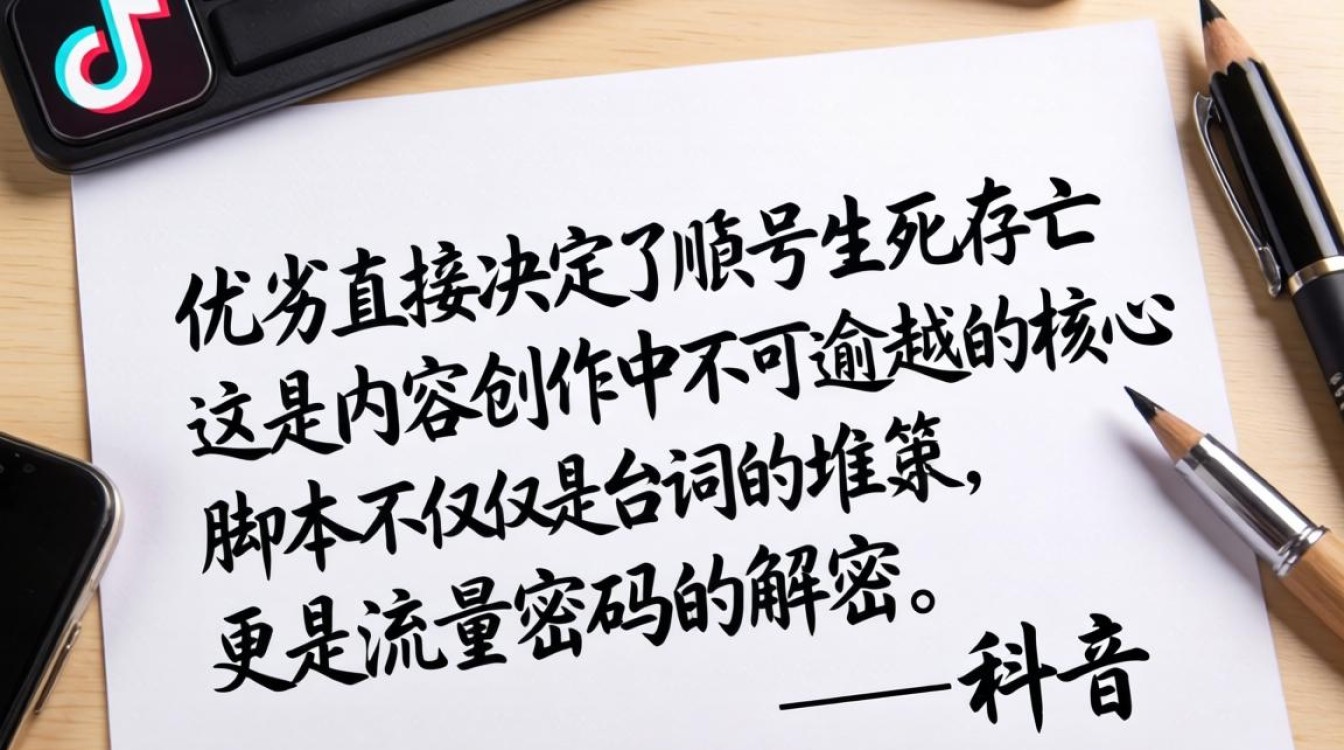 优劣直接决定了账号生死存亡
这是内容创作中不可逾越的核心
脚本不仅仅是台词的堆策，
更是流量密码的解密。
——科音